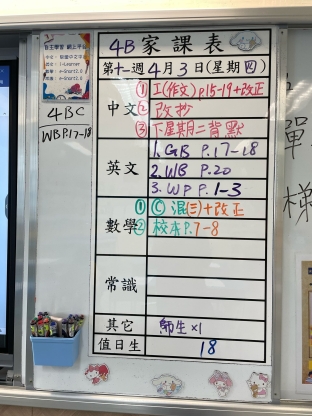 自主學習 網上平台
4BC
WB P.17-18
4B 家課表
第十一週 4月3日(星期四)
中文
① 工(作文) p.15-19+改正
② 改抄
③ 下星期二背默
英文
1. GB P.17-18
2. WB P.20
3. WP P.1-3
數學
① Ⓒ 混(三)+改正
② 校本P.7-8
常識
其它 師生×1
值日生 18
單
梯